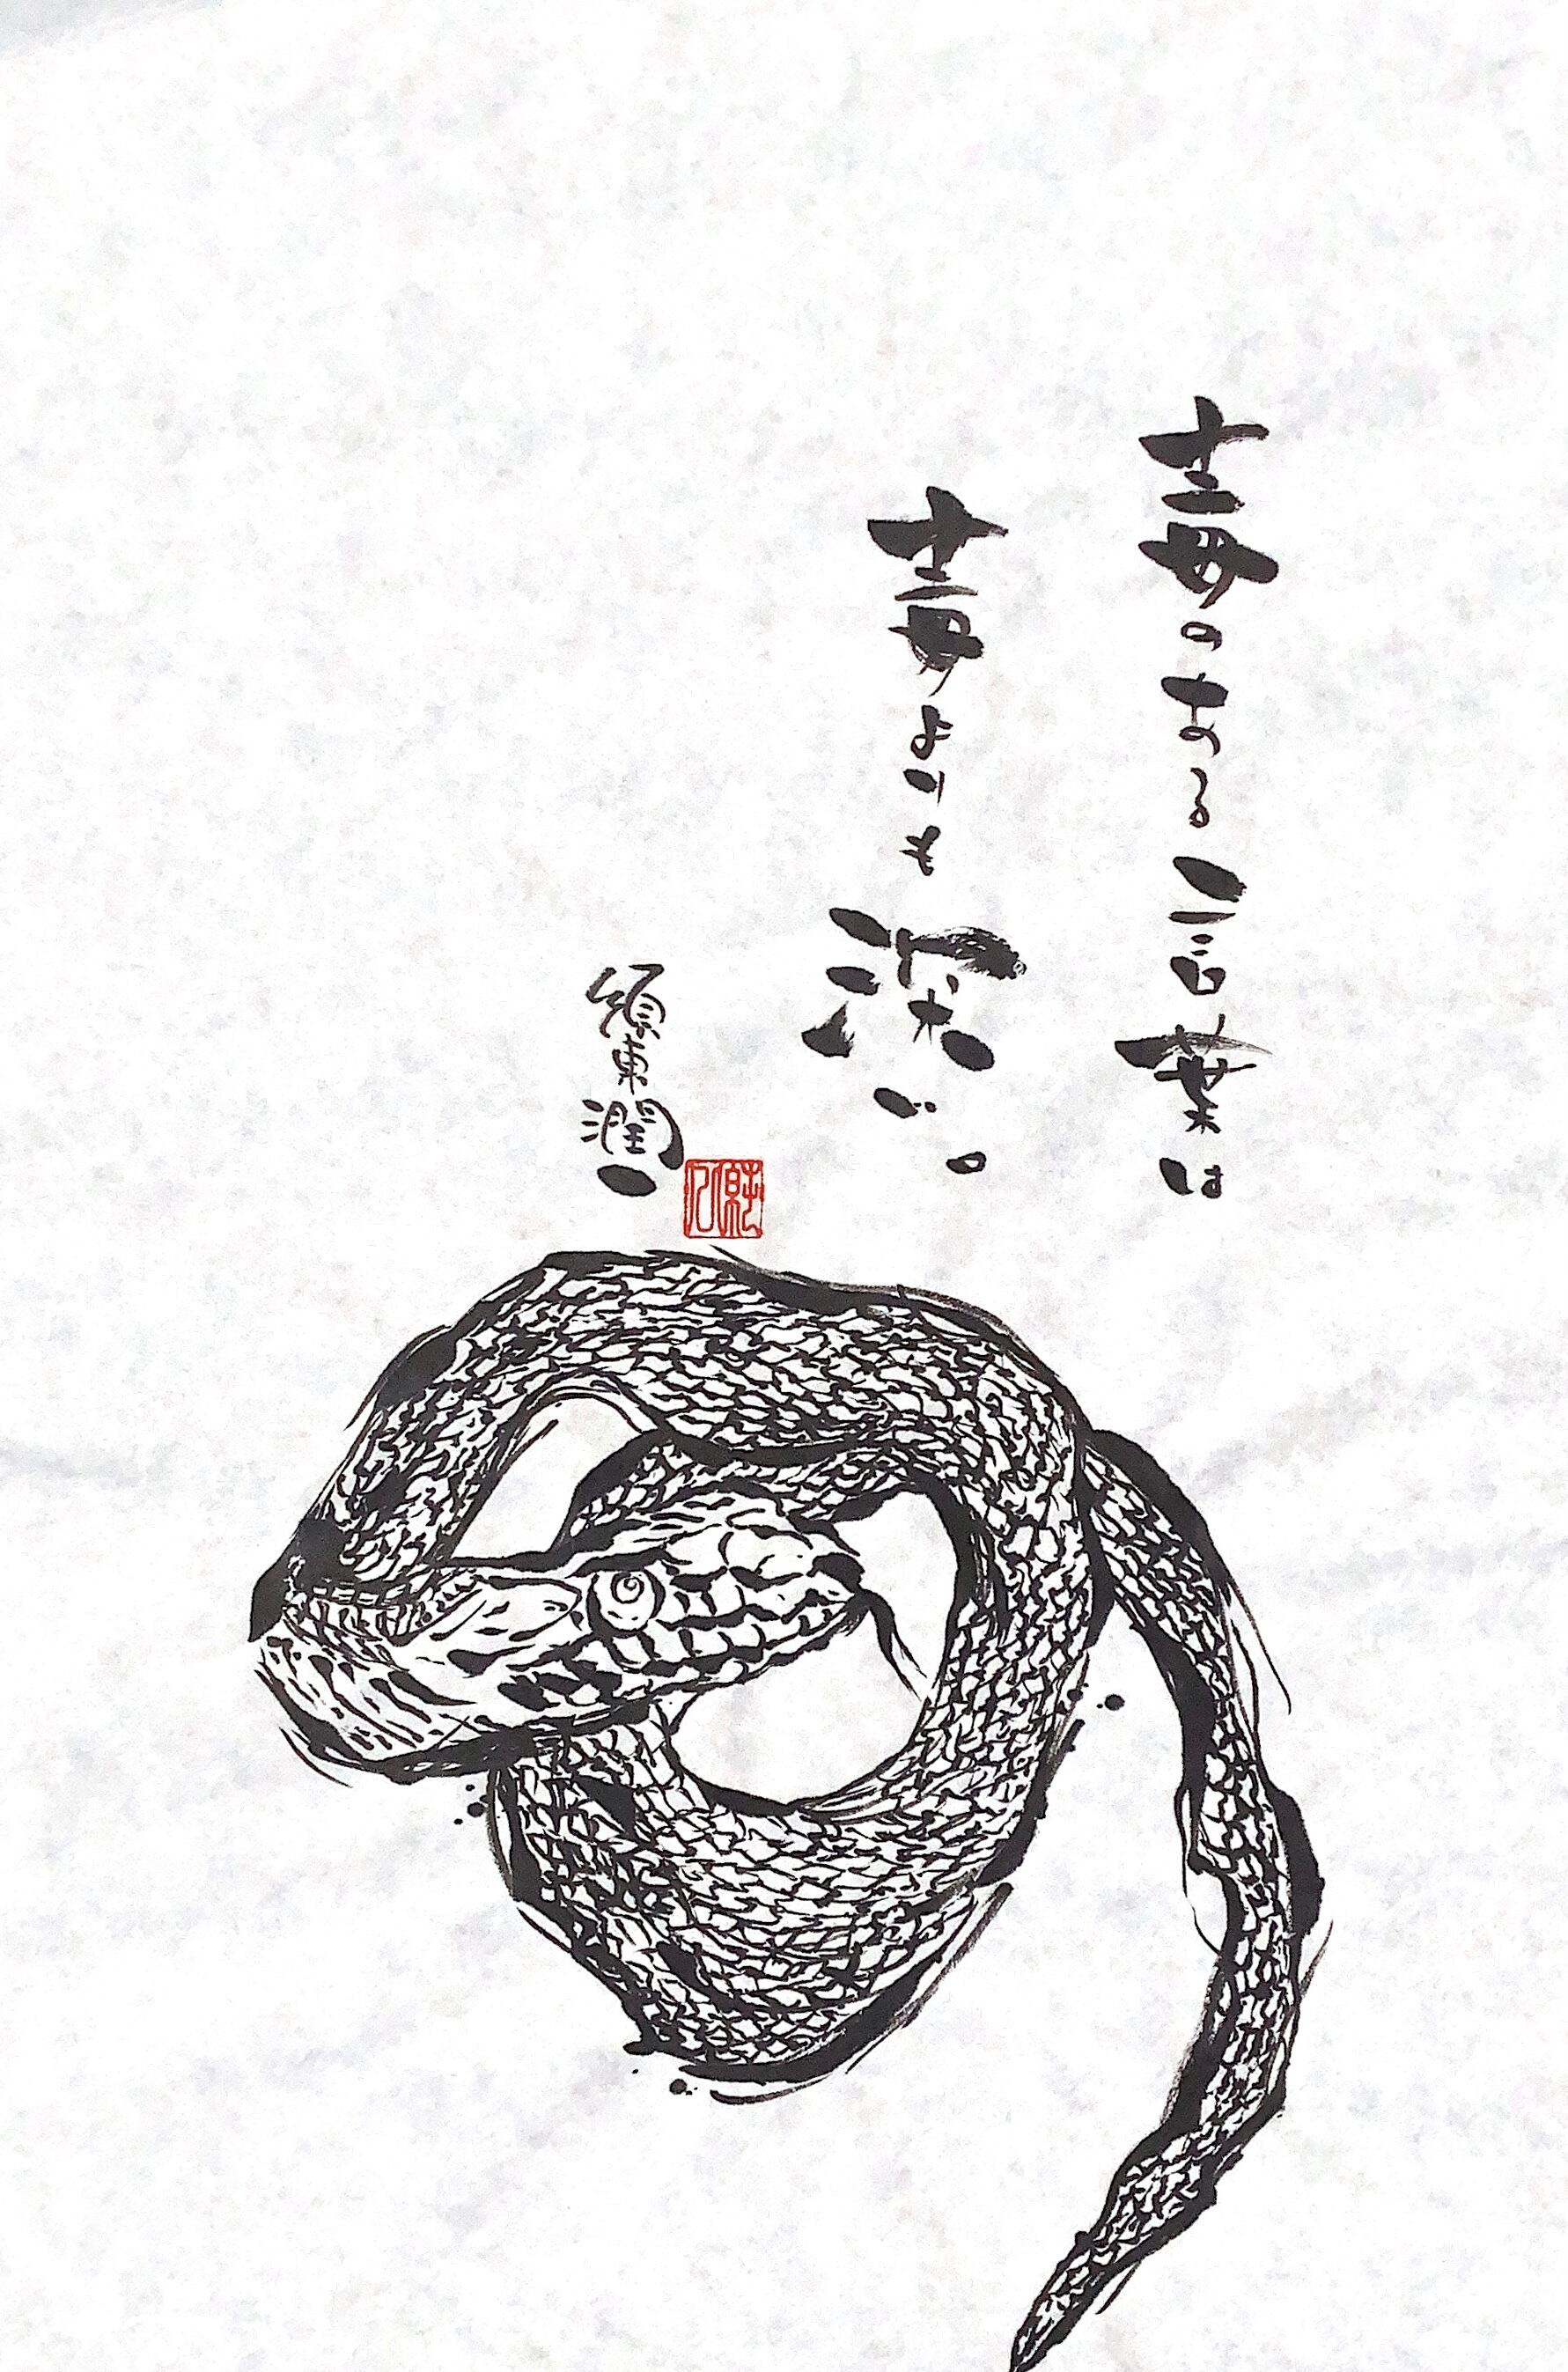 毒のある言葉は
毒よりも深い。
須東潤一